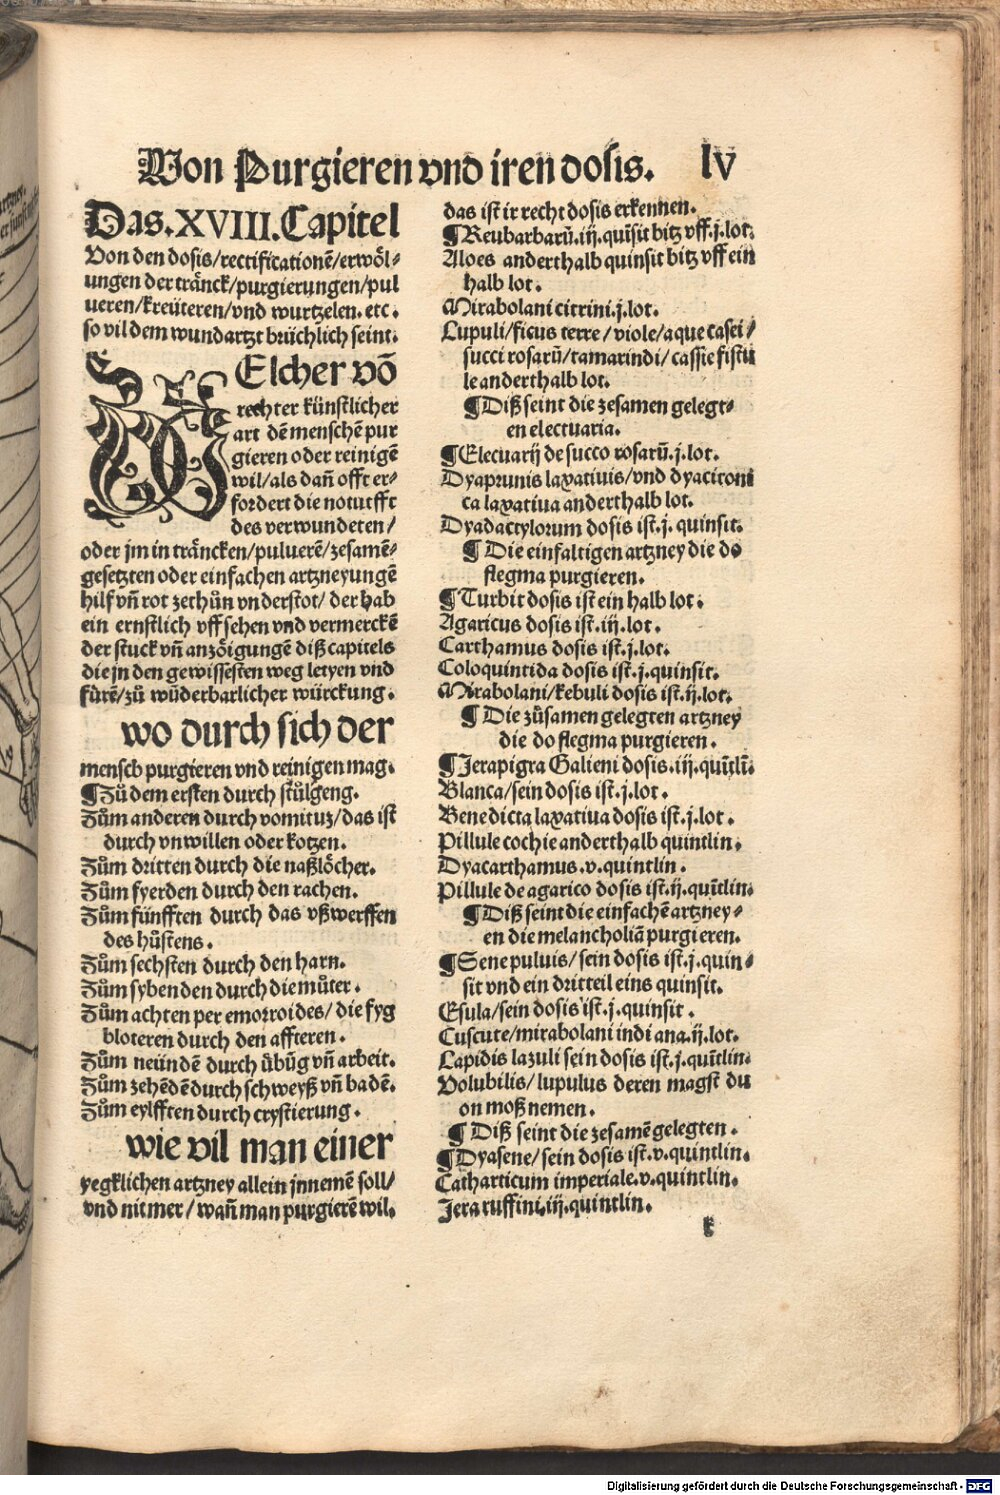 Von Purgieren vnd iren dosis. lv
Das.XVIII.Capitel
Von den dosis/rectificationē/erwöl⸗
ungen der tränck/purgierungen/pul
ueren/kreüteren/vnd wurtzelen. etc.
so vil dem wundartzt brüchlich seint.
WElcher vō
rechter künstlicher
art dē menschē pur
gieren oder reinigē
wil/als dañ offt er⸗
fordert die noturfft
des verwundeten/
oder jm in träncken/puluerē/zesamē⸗
gesetzten oder einfachen artzneyungē
hilf vñ rot zethůn vnderstot/ der hab
ein ernstlich vff sehen vnd vermerckē
der stuck vñ anzöigungē diß capitels
die jn den gewissesten weg leiten vnd
fürē/zů wüderbarlicher würckung.
wo durch sich der
mensch purgieren vnd reinigen mag.
¶Zů dem ersten durch stůlgeng.
Zům anderen durch vomituz/das ist
durch vnwillen oder kotzen.
Zům dritten durch die naßlöcher.
Zům fyerden durch den rachen.
Zům fünfften durch das vßwerffen
des hůstens.
Zům sechsten durch den harn.
Zům sybenden durch die můter.
Zům achten per emorroides/die fyg
bloteren durch den affteren.
Zům neündē durch übūg vñ arbeit.
Zům zehēdē durch schweyß vñ badē.
Zům eylfften durch crystierung.
wie vil man einer
yegklichen artzney allein jnnemē soll/
vnd nit mer/wañ man purgierē wil.
das ist ir recht dosis erkennen.
¶Reubarbarū.iij.quīsit bitz vff.j.lot.
Aloes anderthalb quinsit bitz vff ein
halb lot.
Mirabolani citrini.j.lot.
Lupuli/ficus terre/viole/aque casei/
succi rosarū/tamarindi/cassie fistu
le anderthalb lot.
¶Diß seint die zesamen gelegt⸗
en electuaria.
¶Elecuarij de succo rosarū.j.lot.
Dyaprunis laxatiuis/vnd dyacitoni
ca laxatiua anderthalb lot.
Dyadactylorum dosis ist.j. quinsit.
¶Die einfaltigen artzney die do
flegma purgieren.
¶Turbit dosis ist ein halb lot.
Agaricus dosis ist.iij.lot.
Carthamus dosis ist.j.lot.
Coloquintida dosis ist.j.quinsit.
Mirabolani/kebuli dosis ist.ij.lot.
¶Die zůsamen gelegten artzney
die do flegma purgieren.
¶Jerapigra Galieni dosis.iij.quītlī.
Blanca/sein dosis ist.j.lot.
Benedicta laxatiua dosis ist.j.lot.
Pillule cochie anderthalb quintlin.
Dyacarthamus.v.quintlin.
Pillule de agarico dosis ist.ij.quītlin.
¶Diß seint die einfachē artzney⸗
en die melancholiā purgieren.
¶Sene puluis/sein dosis ist.j.quin⸗
sit vnd ein dritteil eins quinsit.
Esula/sein dosis ist.j.quinsit.
Cuscute/mirabolani indi ana.ij.lot.
Lapidis lazuli sein dosis ist.j.quītlin.
Volubilis/lupulus deren magst du
on moß nemen.
¶Diß seint die zesamē gelegten.
¶Dyasene/sein dosis ist.v.quintlin.
Catharticum imperiale.v.quintlin.
Jera ruffini.iij.quintlin.
k
Digitalisierung gefördert durch die Deutsche Forschungsgemeinschaft - DFG